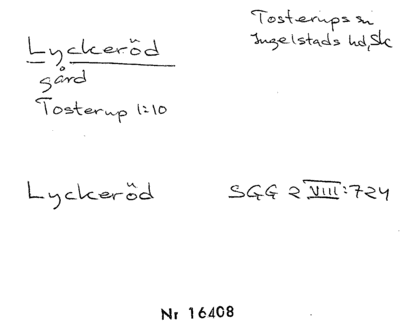 Tosterups sn
Ingelstads hd, Sk
Lyckeröd
gård
Tosterup 1:10
Lyckeröd SGG 2 VIII:724
Nr 16408